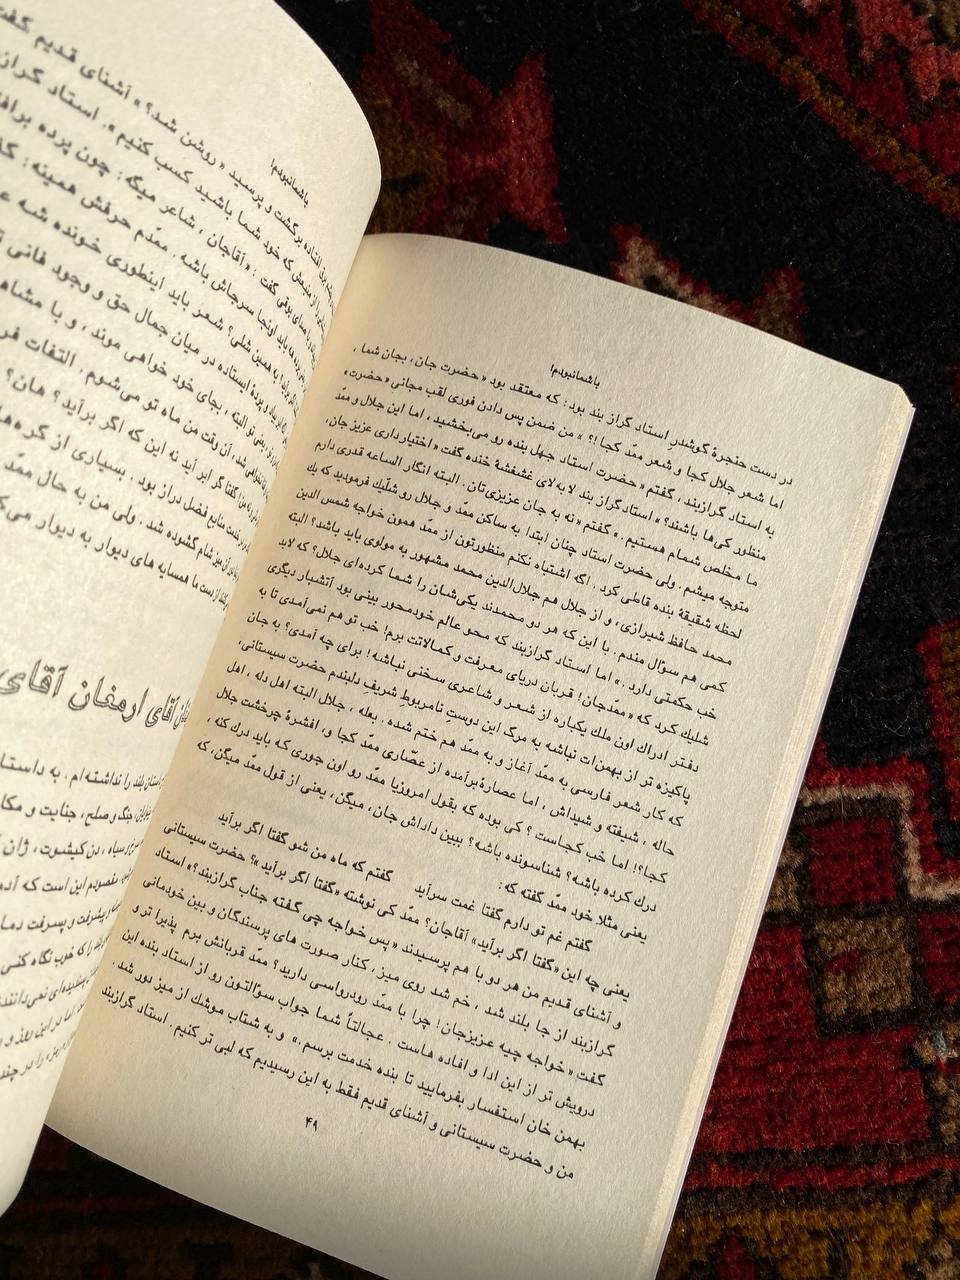 باشمانبودم!
در دست حنجرهٔ گوشدرِ استاد گراز بند بود: که معتقد بود «حضرت جان، بجان شما،
اما شعر جلال کجا و شعر ممّد کجا!؟» من ضمن پس دادن فوری لقب مجانی «حضرت»
به استاد گرازبند، گفتم «حضرت استاد جهل بنده رو می‌بخشید، اما این جلال و ممّد
منظور کی‌ها باشند؟» استاد گراز بند لا به لای غشغشهٔ خنده گفت «اختیار داری عزیز جان،
ما مخلص شمام هستیم.» گفتم «نه به جان عزیزی‌تان. البته انگار الساعه قدری دارم
متوجه میشم. ولی حضرت استاد چنان ابتدا به ساکن ممّد و جلال رو شلّیك فرمودید که یك
لحظه شقیقهٔ بنده قاطی کرد. اگه اشتباه نکنم منظورتون از ممّد همون خواجه شمس الدین
محمد حافظ شیرازی، و از جلال هم جلال‌الدین محمد مشهور به مولوی باید باشد؟ البته
کمی هم سؤال مندم. با این که هر دو محمدند یکی‌شان را شما کرده‌ای جلال؟ که لابد
خب حکمتی دارد.» اما استاد گرازبند که محو عالم خودمحور بینی بود آتشبار دیگری
شلیك کرد که «ممّدجان! قربان دریای معرفت و کمالاتت برم! خب تو هم نمی‌آمدی تا به
دفتر ادراك اون ملك یکباره از شعر و شاعری سخنی نباشه! برای چه آمدی؟ به جان
پاکیزه تر از بهمن‌ات نباشه به مرگ این دوستِ نامربوطِ شریفِ دلبندم حضرت سیستانی،
که کار شعر فارسی به ممّد آغاز و به ممّد هم ختم شده. بعله، جلال البته اهل دله، اهل
حاله، شیفته و شیداش، اما عصارهٔ برآمده از عصّاری ممّد کجا و، افشرهٔ چرخشت جلال
کجا؟! اما خب کجاست؟ کی بوده که بقول امروزیا ممّد رو اون جوری که باید درك کنه،
درك کرده باشه؟ شناسونده باشه؟ ببین داداش جان، میگن، یعنی از قول ممّد میگن، که
یعنی مثلا خود ممّد گفته که:
گفتم غم تو دارم گفتا غمت سرآید گفتم که ماه من شو گفتا اگر برآید
یعنی چه این «گفتا اگر برآید» آقاجان؟ ممّد کی نوشته «گفتا اگر برآید»؟ حضرت سیستانی
و آشنای قدیم من هر دو با هم پرسیدند «پس خواجه چی گفته جناب گرازبند؟» استاد
گرازبند از جا بلند شد، خم شد روی میز، کنار صورت های پرسندگان و بین خودمانی
گفت «خواجه چیه عزیزجان! چرا با ممّد رودرواسی دارید؟ ممّد قربانش برم پذیرا تر و
درویش تر از این ادا و افاده هاست. عجالتاً شما جواب سؤالتون رو از استاد بنده این
بهمن خان استفسار بفرمایید تا بنده خدمت برسم.» و به شتاب موشك از میز دور شد.
من و حضرت سیستانی و آشنای قدیم فقط به این رسیدیم که لبی تر کنیم. استاد گرازبند
۴۹
باشمانبودم!
برگشت و پرسید «روشن شد؟» آشنای قدیم
که خود شما باشید کسب کنیم». استاد
گفت: «آقاجان، شاعر میگه: چون پرده
باید اونجا سرجاش باشه. ممّدم حرفش همینه:
به همین شلی؟ شعر باید اینطوری خونده شه
و پردهٔ ایستاده در میان جمال حق و وجود فانی
تو البته، بجای خود خواهی موند، و با
شد، آن وقت من ماه تو می‌شوم. التفات
گفتا گر برآید نه این که اگر برآید؟ هان؟
منابع فضل دراز بود. بسیاری از
شام گشوده شد. ولی من به حال ممّد
از دست ما همسایه های دیوار به دیوار
آقای ارمغان آقای
را نداشته‌ام. به
جنگ و صلح، جنایت و
سیاه، دن کیشوت، ژان
مقصودم این است که
و پیشرفت و پسرفت
را که خوب نگاه کنی
اما در این روند و